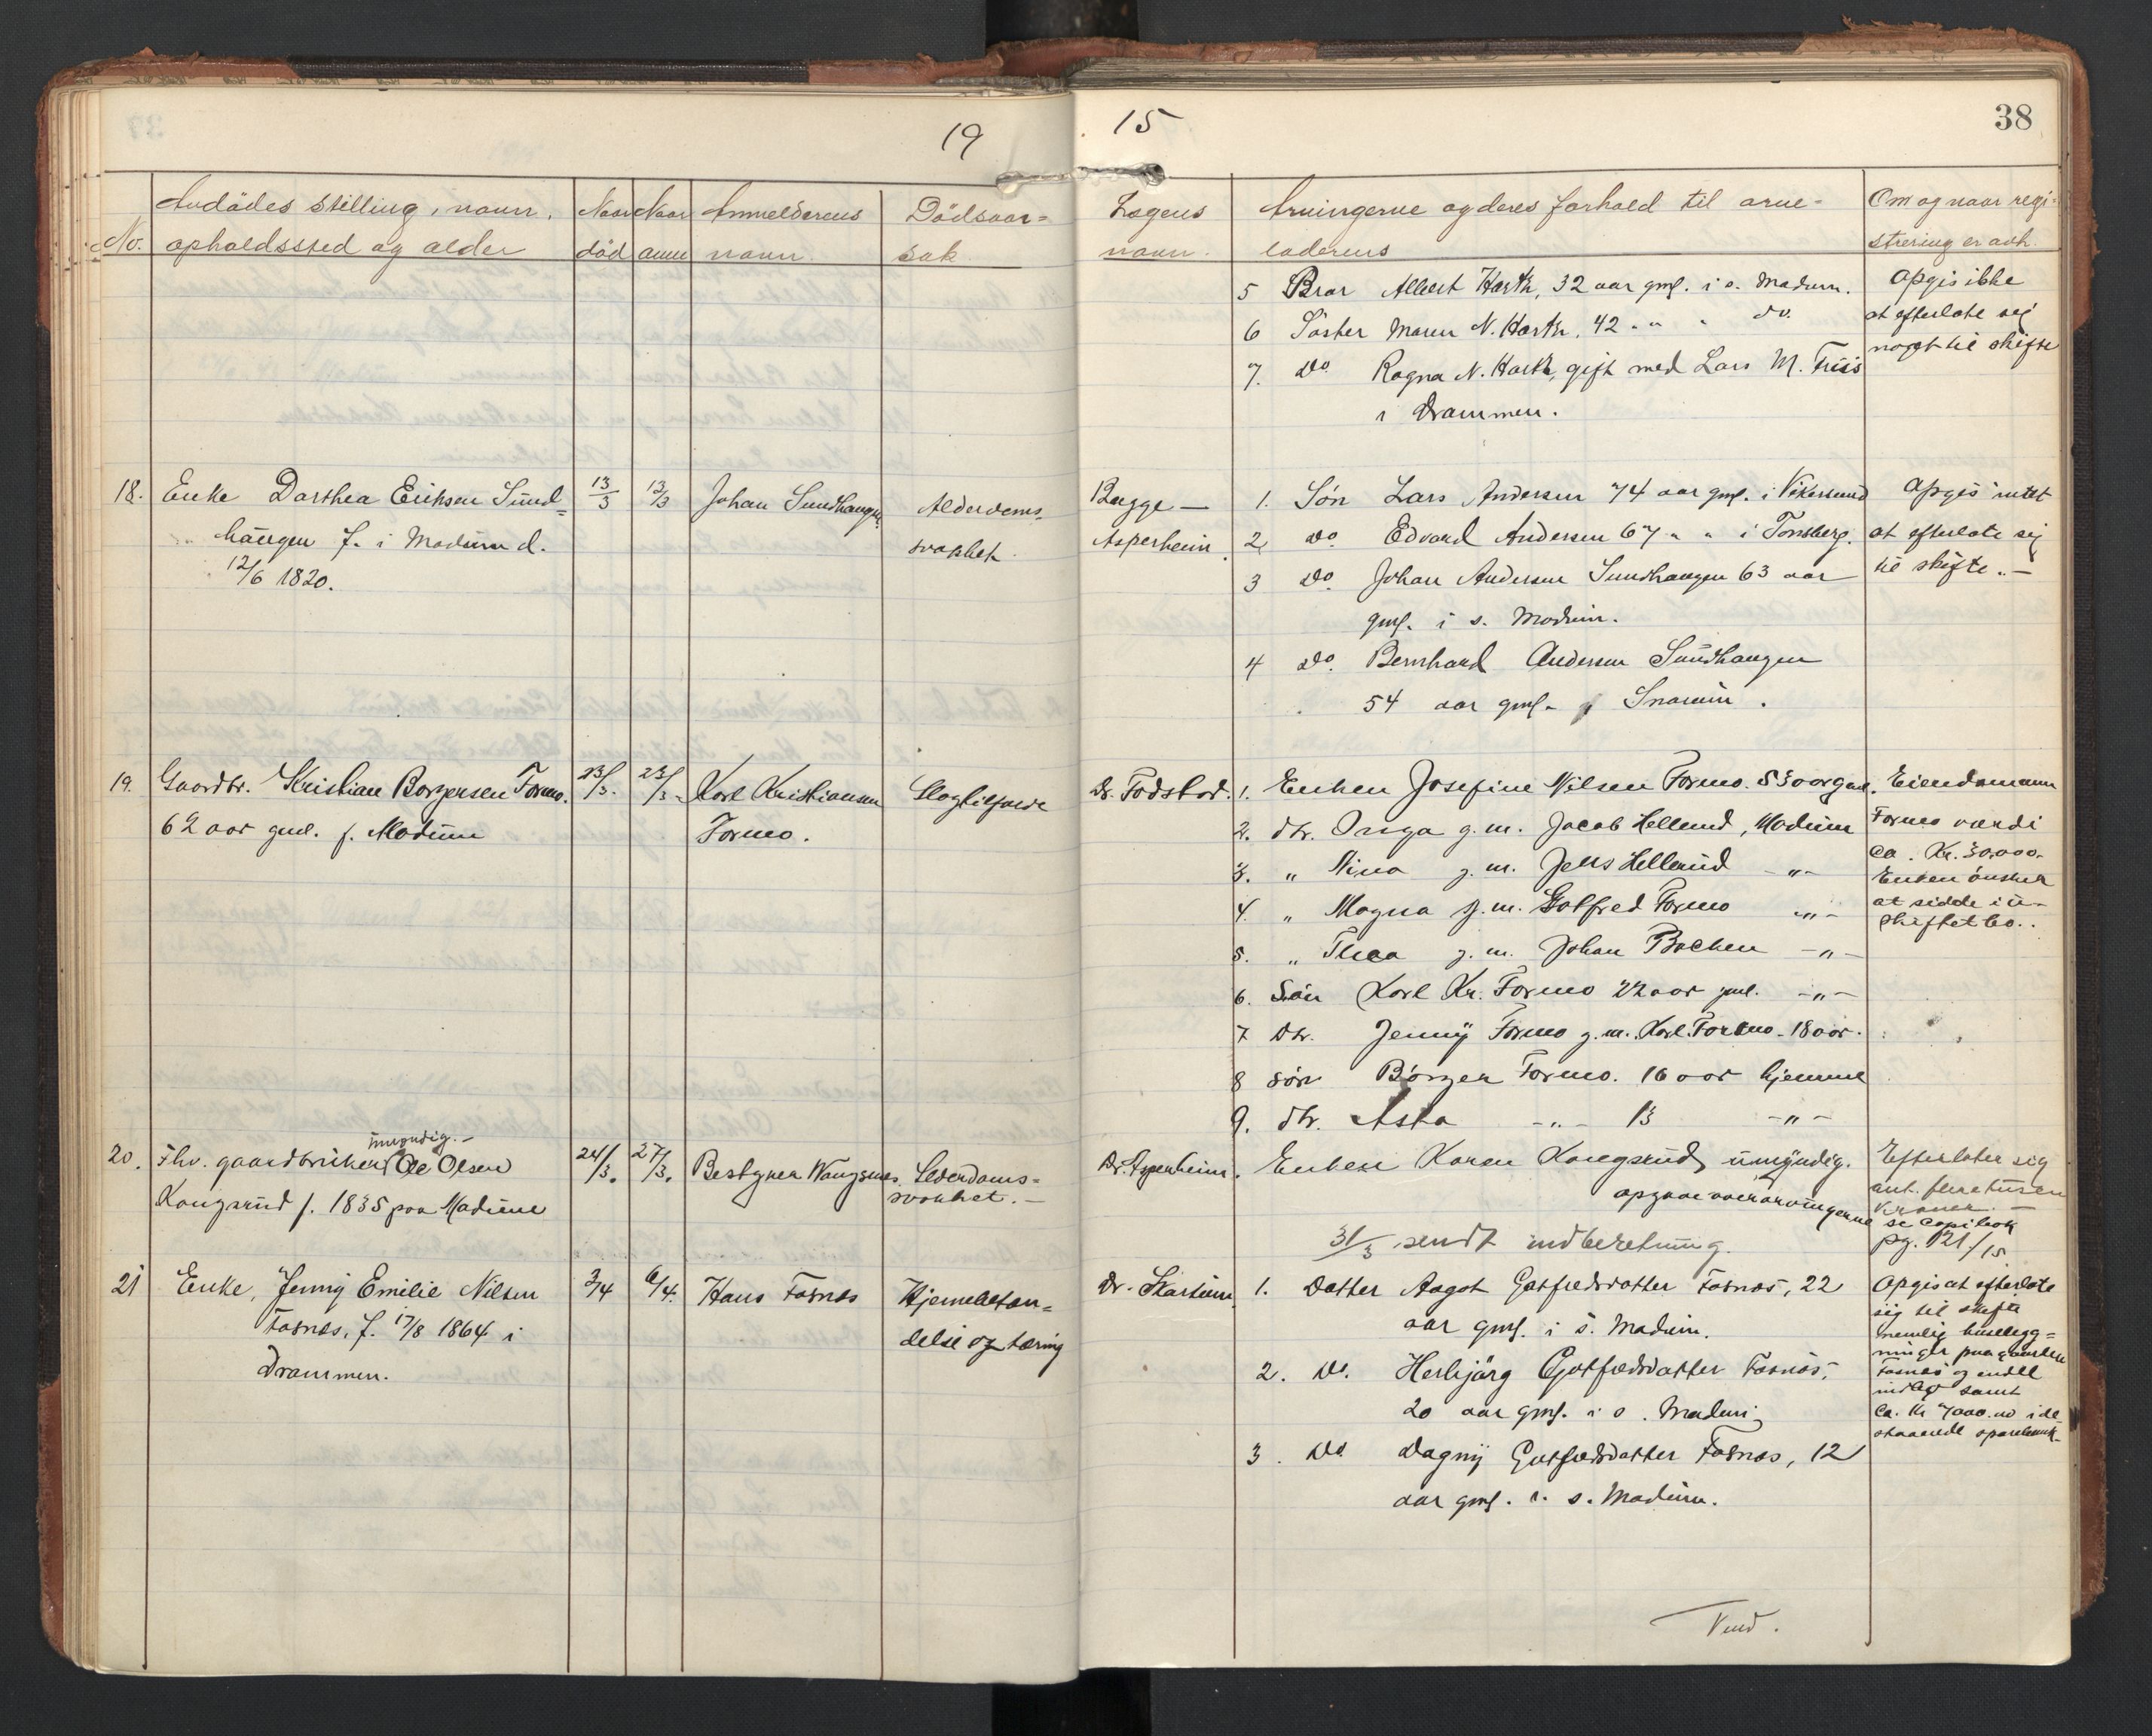 19 15 38
No.
Avdödes stilling, navn,
opholdssted og alder
Naar
död
Naar
anm
Anmelderens
navn.
Dödsaar-
sak
Lægens
navn.
Arvingerne og deres forhold til arve-
laderens
Om og naar regi-
strering er avh.
5 Bror Albert Hartz, 32 aar gml. i s. Modum.
6 Söster Maren N. Hartz, 42 " " " do.
7. Do Ragna N. Hartz, gift med Lars M. Friis
i Drammen.
Opgis ikke
at efterlate sej
noget til skifte
18. Enke Dorthea Eriksen Sund-
haugen f. i Modum d.
12/6 1820.
13/3
13/3
Johan Sundhaugen
Alderdoms-
svaphet.
Bugge —
Asperheim.
1. Søn Lars Andersen 74 aar gml. i Vikersund
2 Do. Edvard Andersen 67 " " i Tønsberg.
3 Do. Johan Andersen Sundhaugen 63 aar
gml. i s. Modum.
4 Do. Bernhard Andersen Sundhaugen
54 aar gml. Snarum.
Opgis intet
at efterlate sej
til skifte. —
19. Gaardbr. Kristian Borgersen Formo.
62 aar gml. f. Modum
23/3.
23/3.
Karl Kristiansen
Formo.
Slagtilfælde
Dr. Fodstad.
1. Enken Josefine Nilsen Formo. 53 aar gml.
2. dtr. g.m. Jacob Hellerud, Modum
3. " Nina g.m. Jens Hellerud - " -
4. " Magna g.m. Gotfred Formo - " -
5. " Thea g.m. Johan Bachen - " -
6. Søn Karl Kr. Formo 22 aar gml. - " -
7 Dtr. Jenny Formo g.m. Karl Formo - 18 aar.
8 søn Börger Formo. 16 aar hjemme
9. dtr. Asta - " - 13 - " -
Eiendommen
Formo værdi
ca. Kr. 30,000.
Enken önsker
at sidde i u-
skiftet bo..
20. Fhv. gaardbruker umyndig. - Ole Olsen
Kongsrud f. 1835 paa Modum
24/3.
27/3.
Bestyrer Wangsnes.
Alderdoms-
svakhet. -
Dr. Asperheim.
Enken Karen Kongsrud, umyndig.
opgave over arvingerne
31/3 sendt indberetning.
Efterlater sig
ant. flere tusen
Kroner. -
se Copibok
pg. 121/15
21 Enke, Jenny Emilie Nilsen
Fosnæs, f. 17/8 1864 i
Drammen.
3/4
6/4.
Hans Fosnæs
Hjernebetæn-
delse og tæring
Dr. Skartum
1. Datter Aagot Gotfredsdatter Fosnæs, 22
aar gml. i s. Modum.
2. Do. Herbjörg Gotfredsdatter Fosnæs,
20 aar gml. i s. Modum,
3. Do Dagny Gotfredsdatter Fosnæs, 12
aar gml. i. s. Modum.
Opgis at efterlate
sig til skifte
nemlig huse
paa gaarden
Fosnæs og endel
indbo samt
Ca. Kr 7000.00 i de
Vend.